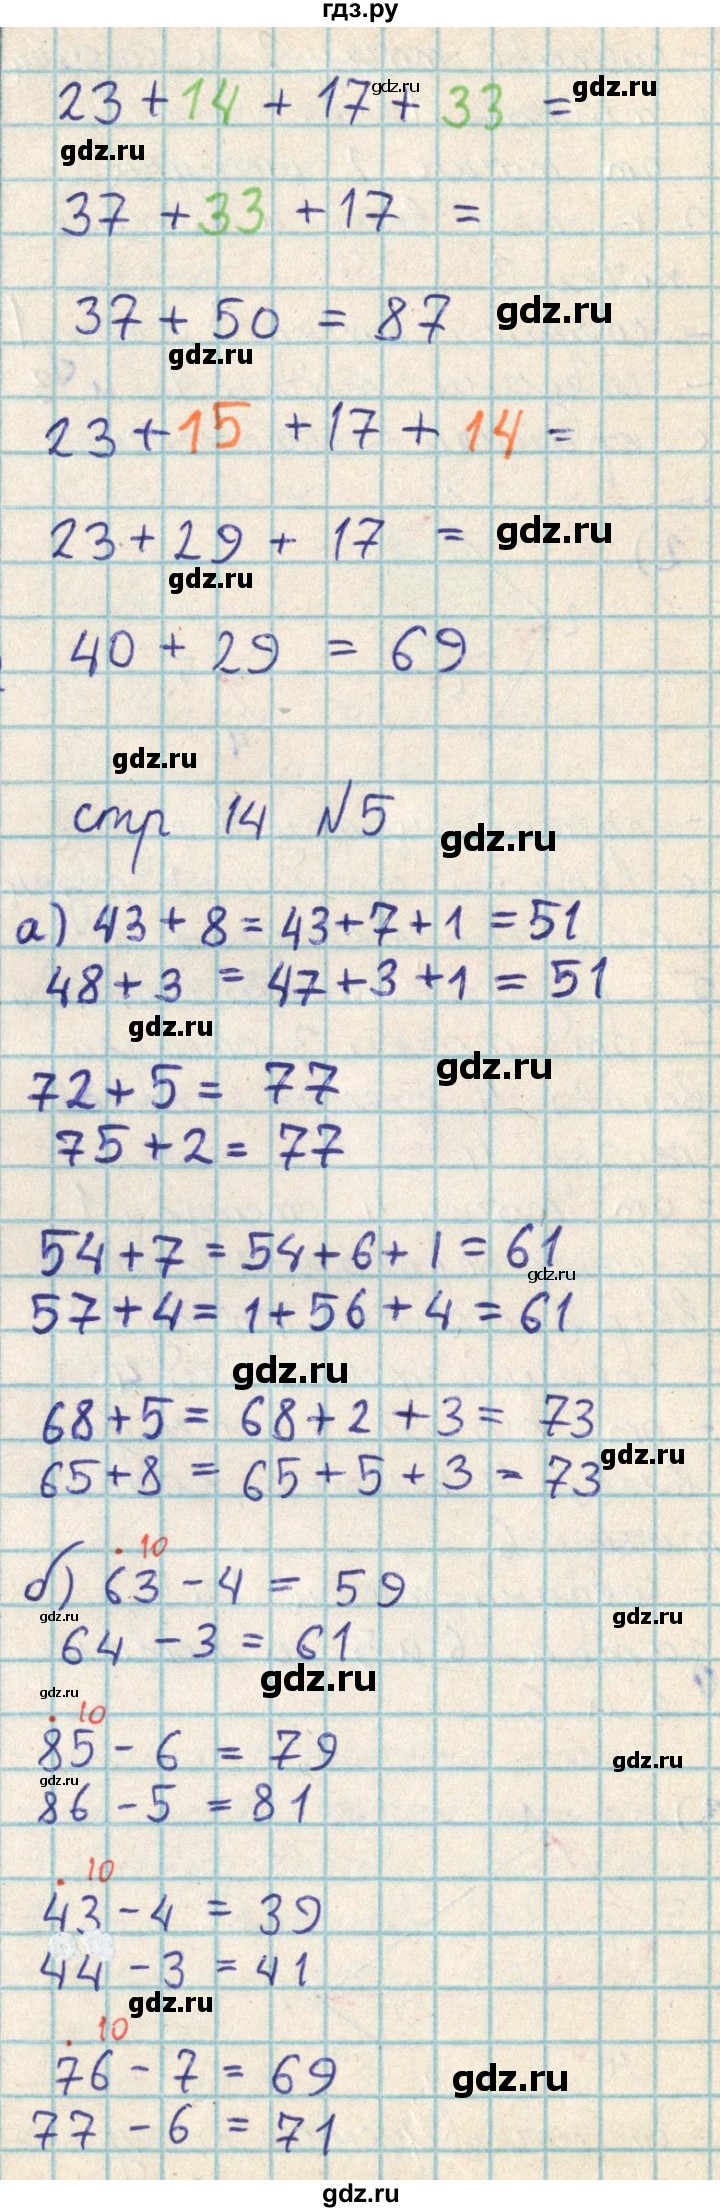 гдз.ру
23 + 14 + 17 + 33 =
gdz.ru
gdz.ru
gdz.ru
37 + 33 + 17 =
37 + 50 = 87
gdz.ru
gdz.ru
23 + 15 + 17 + 14 =
23 + 29 + 17 =
gdz.ru
gdz.ru
40 + 29 = 69
gdz.ru
стр 14 №5
gdz.ru
а) 43 + 8 = 43 + 7 + 1 = 51
48 + 3 = 47 + 3 + 1 = 51
gdz.ru
72 + 5 = 77
gdz.ru
75 + 2 = 77
54 + 7 = 54 + 6 + 1 = 61
gdz.ru
57 + 4 = 1 + 56 + 4 = 61
gdz.ru
68 + 5 = 68 + 2 + 3 = 73
gdz.ru
65 + 8 = 65 + 5 + 3 - 73
. 10
б) 63 - 4 = 59
gdz.ru
gdz.ru
64 - 3 = 61
gdz.ru
gdz.ru
. 10
85 - 6 = 79
gdz.ru
gdz.ru
86 - 5 = 81
. 10
43 - 4 = 39
44 - 3 = 41
gdz.ru
. 10
76 - 7 = 69
gdz.ru
77 - 6 = 71
gdz.ru